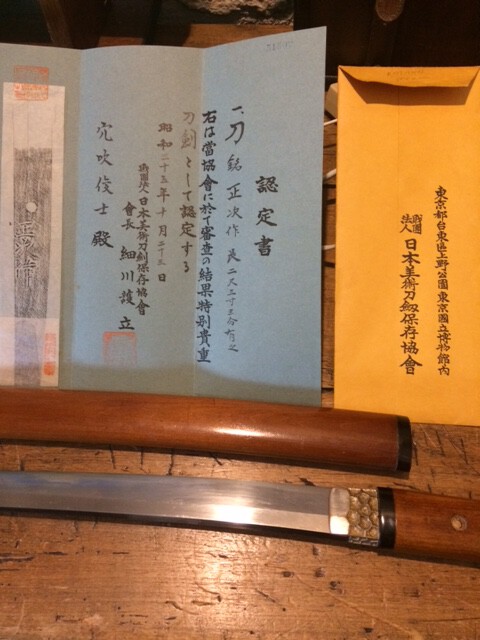 認定書
一、刀 銘 正次作 長二尺三寸三分有之
右は當協會に於て審査の結果特別貴重
刀劍として認定する
昭和二十五年十月二十三日
財團法人 日本美術刀劍保存協會
會長 細川護立
殿
正次作
東京都台東區上野公園東京國立博物館内
財團法人 日本美術刀劔保存協會